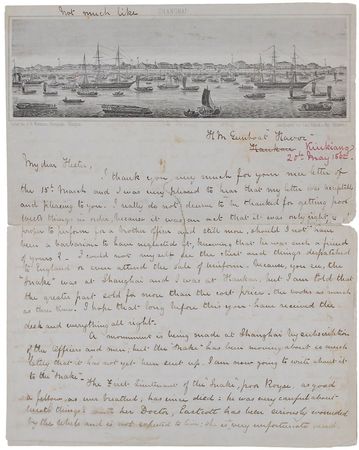 Not much like
SHANGHAI
H.M. Gunboat Havoc
Hankow Kiukiang
20th May 1862
My dear Hester,
I thank you very much for your nice letter of
the 18th March and I was very pleased to hear that my letter was
and pleasing to you. I really do not deserve to be thanked for getting poor
things in order, because it was an act that it was only right &
proper to perform for a brother officer and still more, should I not have
been a barbarian to have neglected it, knowing that he was such a friend
of yours? I could not myself see the chest and things despatched
to England or even attend the sale of uniform because, you see, the
"Snake" was at Shanghai and I was at Hankow; but I am told that
the greater part sold for more than the cost price. the books as much
as three times. I hope that long before this you have received the
desk and everything all right.
A monument is being made at Shanghai by subscription
of the officers and men; but the "Snake" has been moving about so much
lately that it has not yet been sent up. I am now going to write about it
to the "Snake".
The First Lieutenant of the Snake, poor Royse, as good
a fellow, as ever breathed, has since died: he was very careful about
things: her Doctor, Eastcott has been seriously wounded
by the and is not expected to live: she is very unfortunate